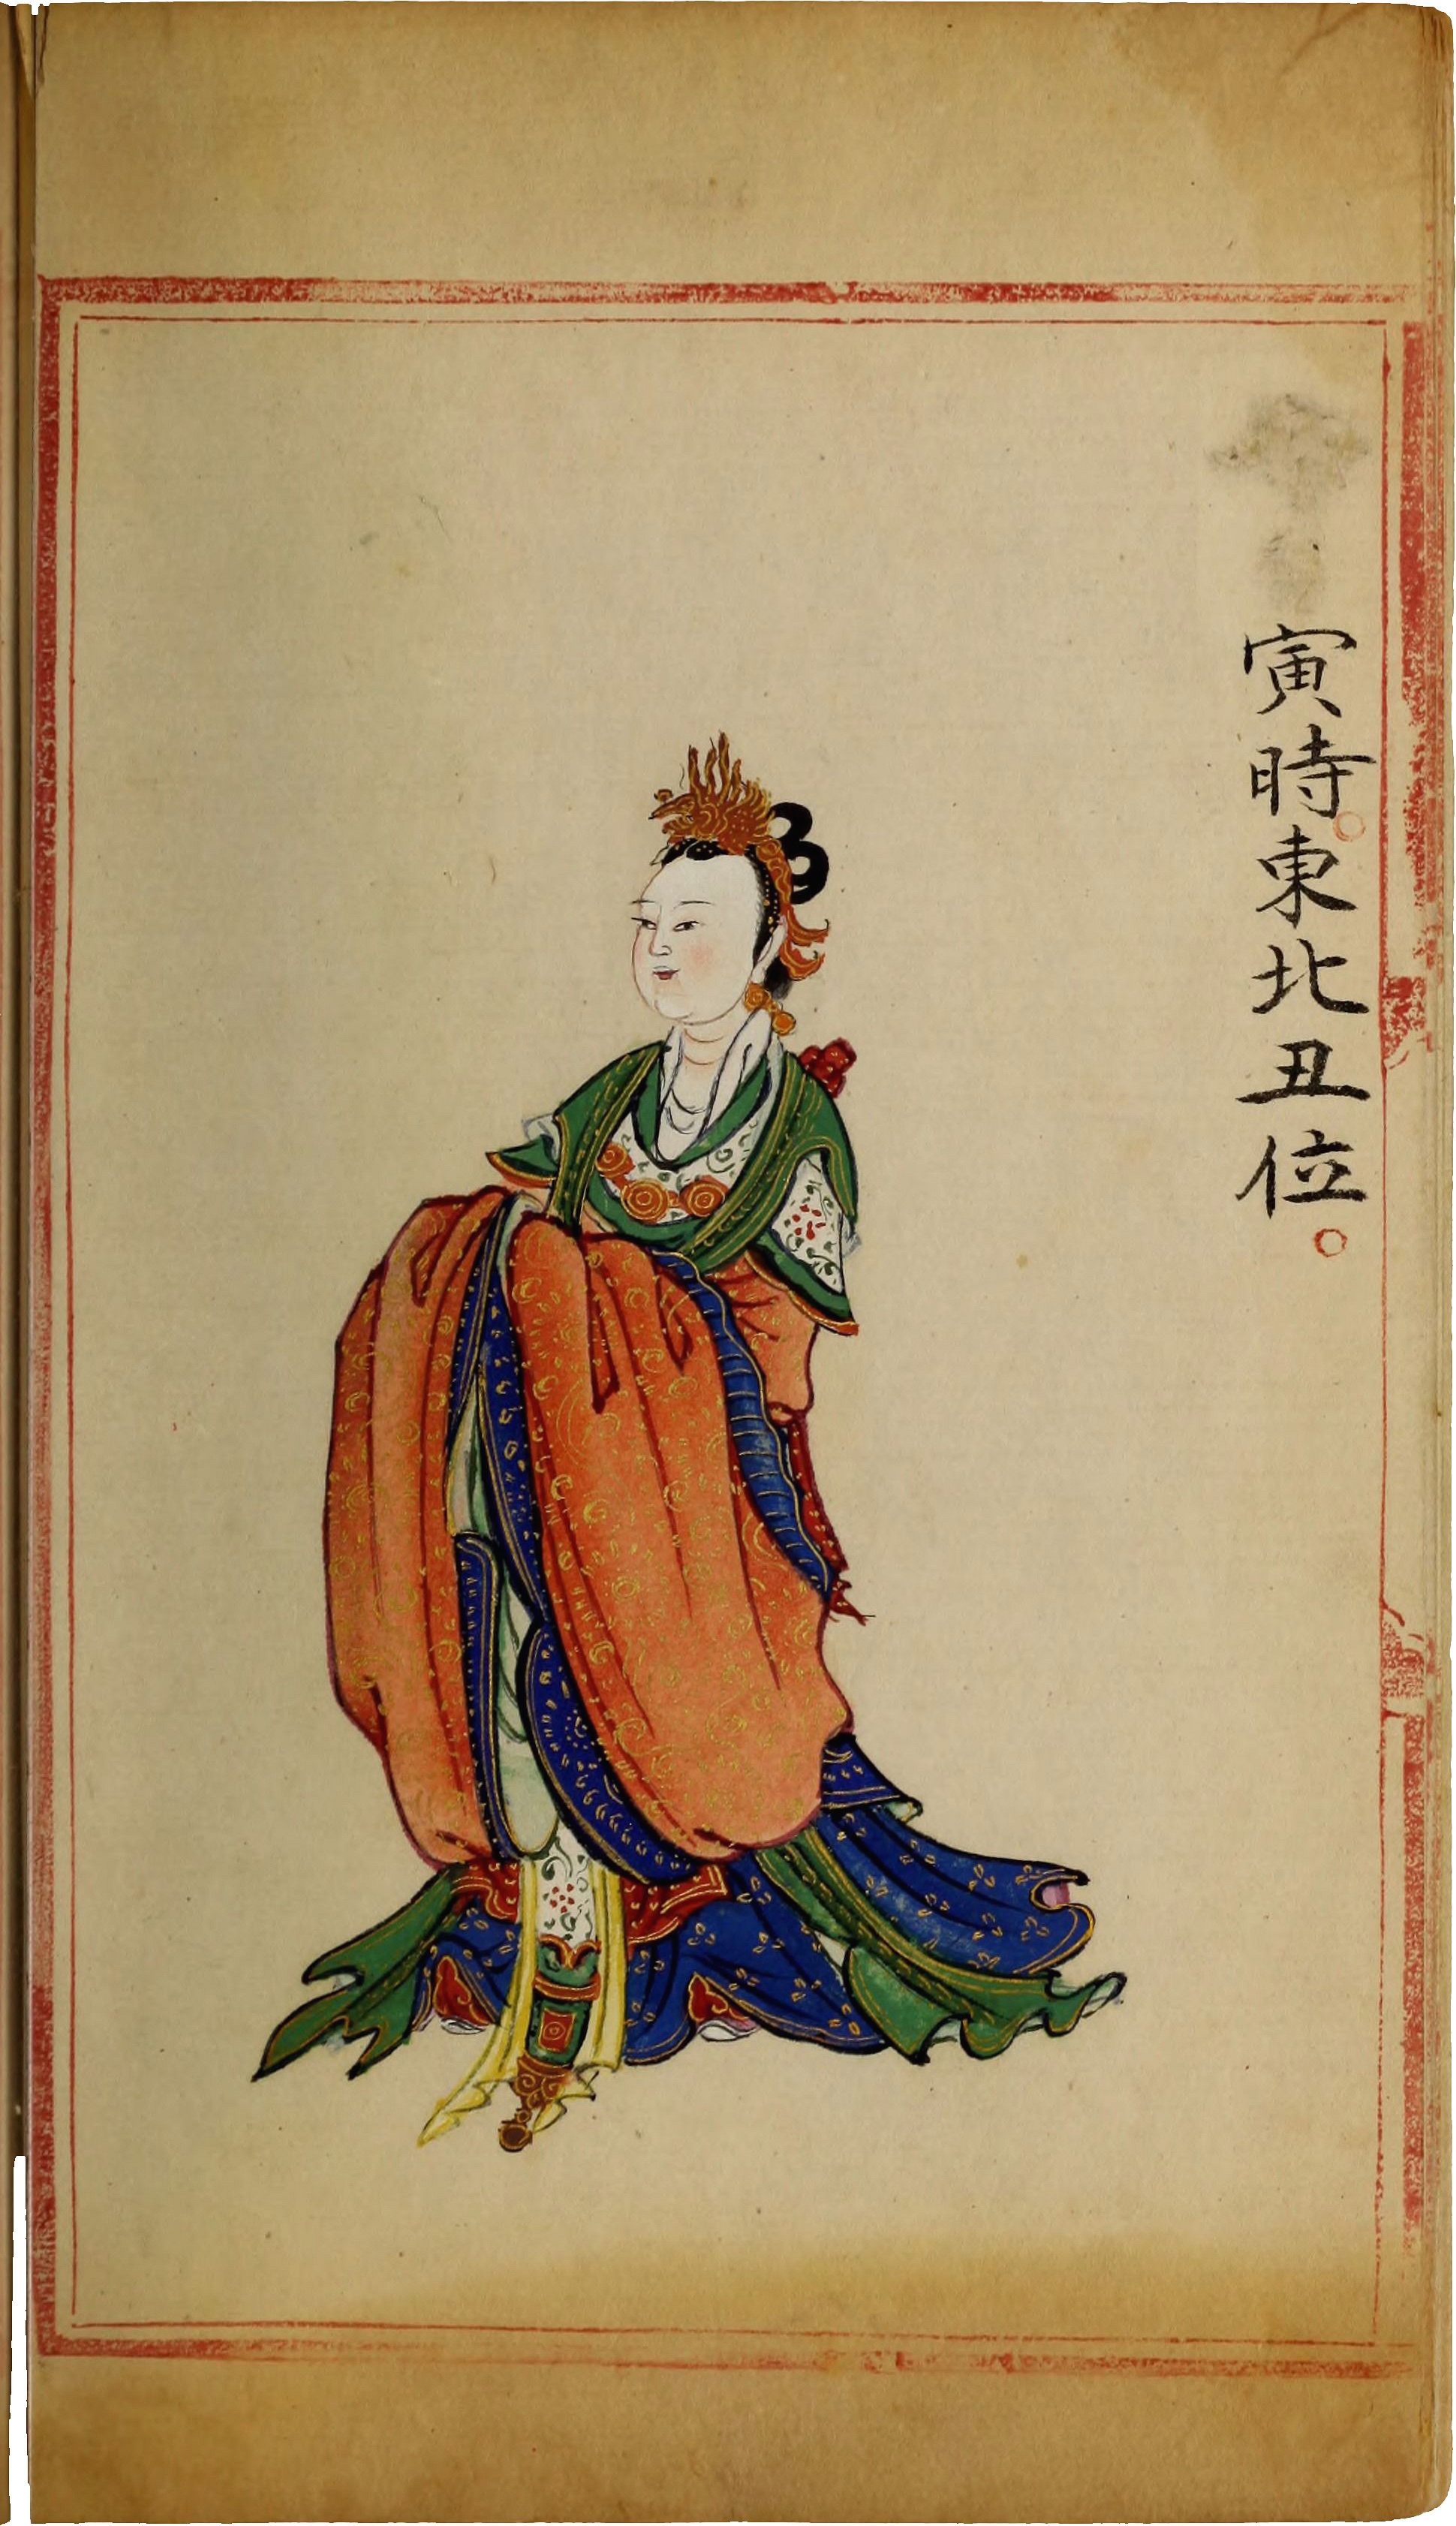 寅時東北丑位